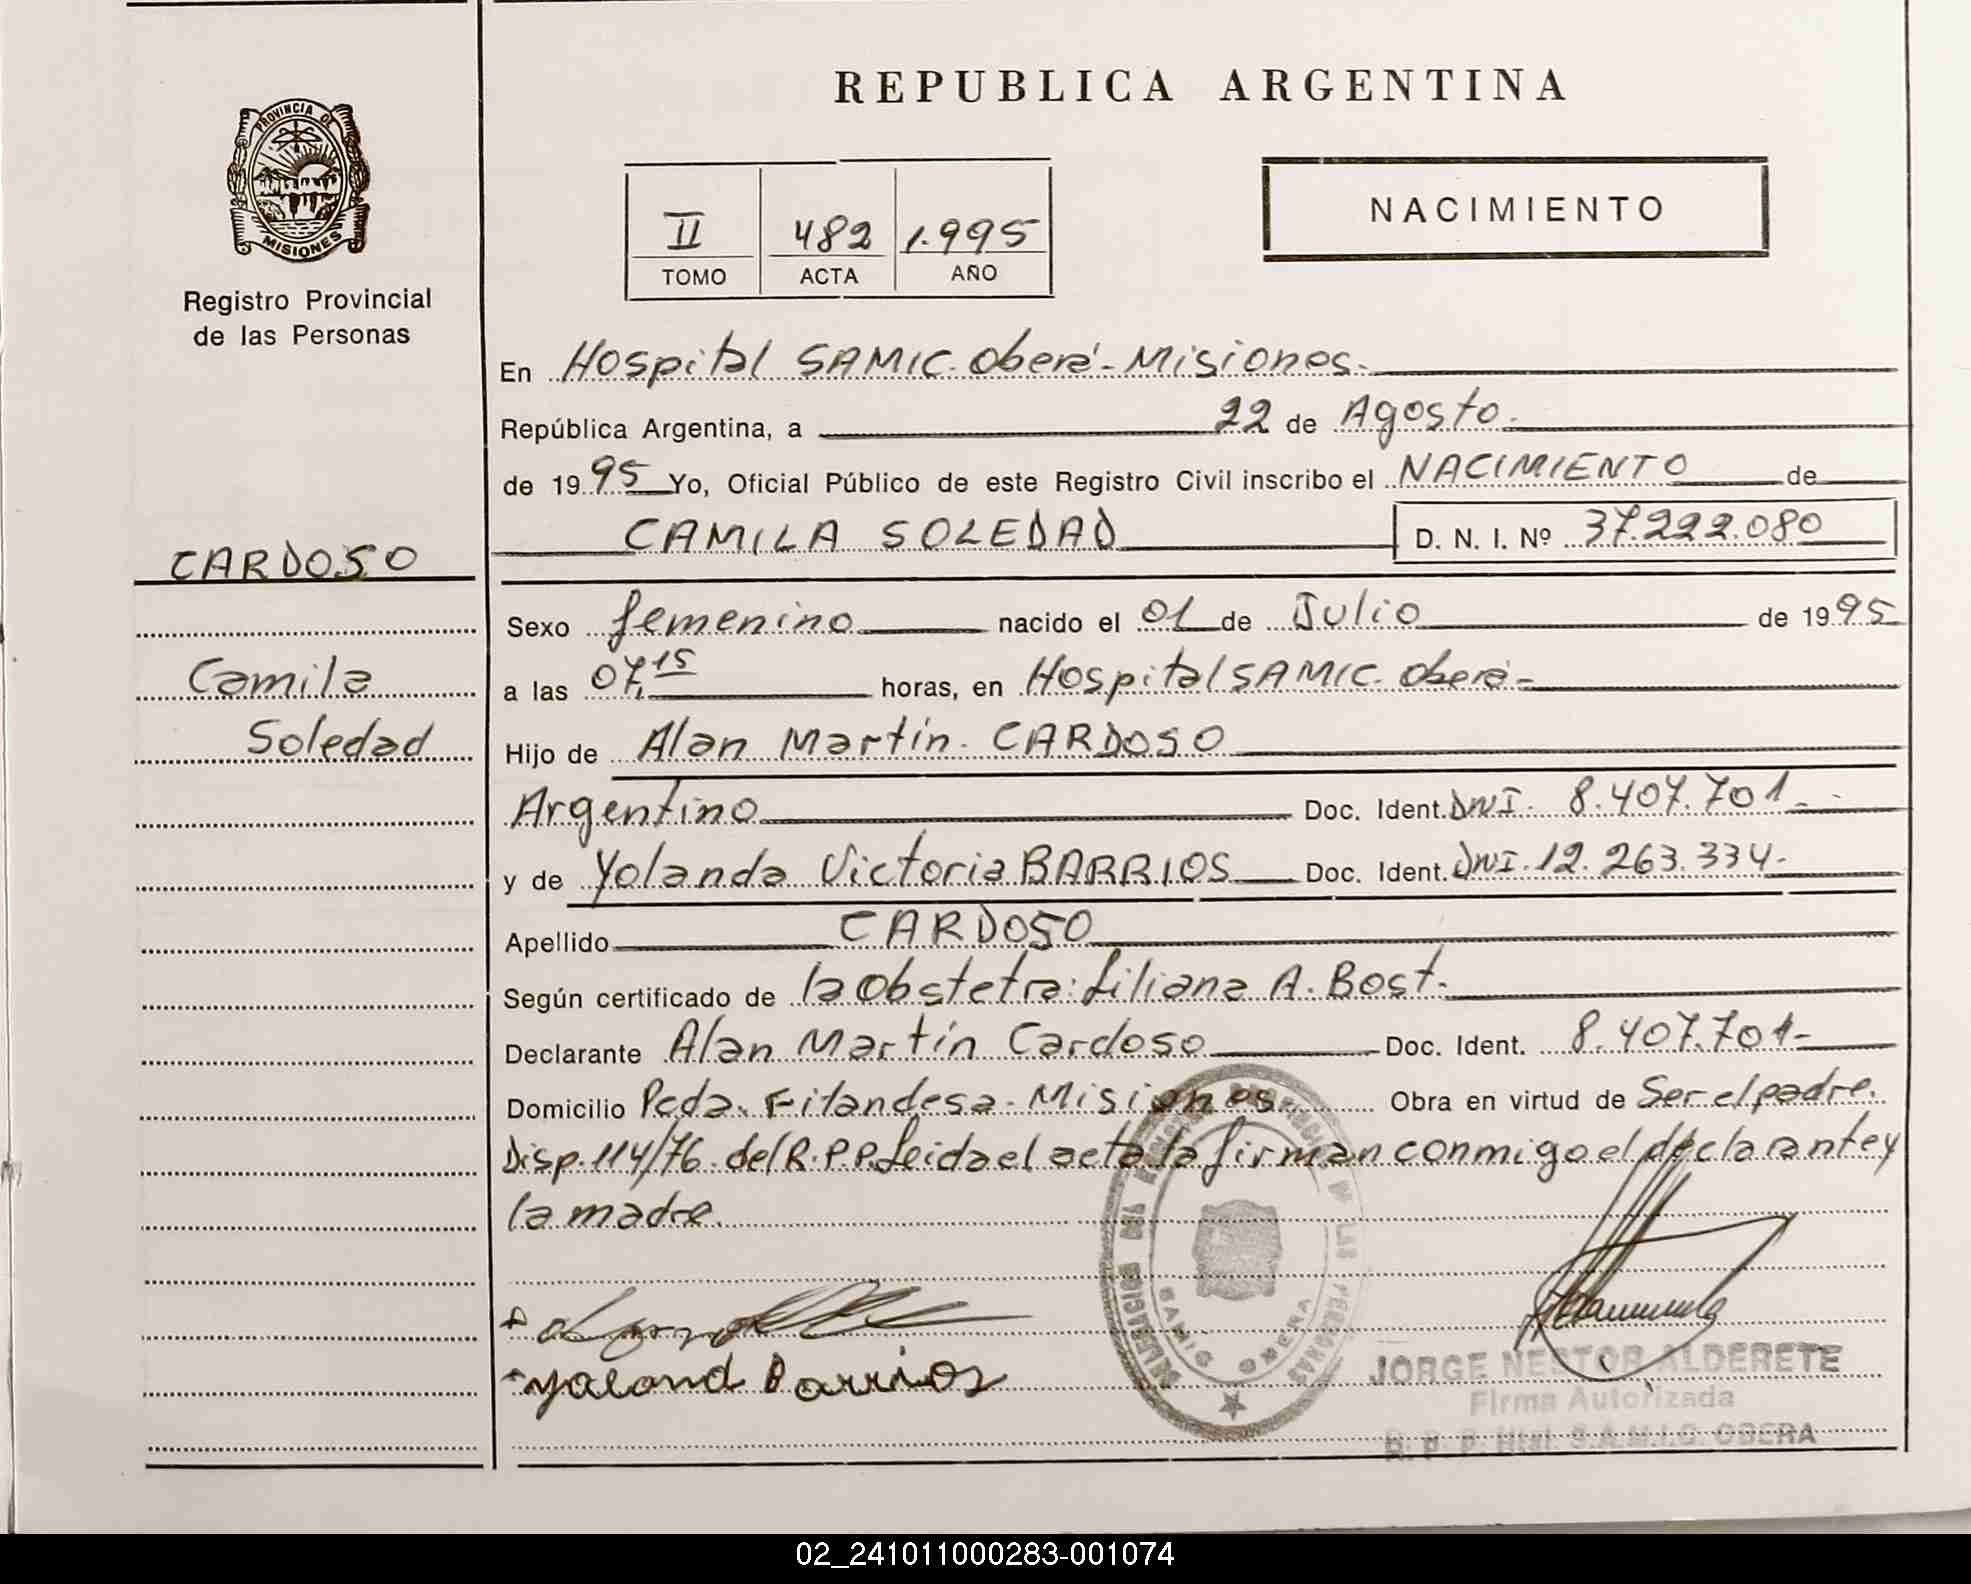 REPUBLICA ARGENTINA
PROVINCIA DE
MISIONES
Registro Provincial
de las Personas
II 482 1.995
TOMO ACTA AÑO
NACIMIENTO
En Hospital SAMIC. Oberá - Misiones.
República Argentina, a 22 de Agosto.
de 1995 Yo, Oficial Público de este Registro Civil inscribo el NACIMIENTO de
CAMILA SOLEDAD D. N. I. Nº 37.222.080
CARDOSO
Camila
Soledad
Sexo femenino nacido el 01 de Julio de 1995
a las 07,15 horas, en Hospital SAMIC. Oberá-
Hijo de Alan Martín. CARDOSO
Argentino Doc. Ident. DNI. 8.407.701.-
y de Yolanda Victoria BARRIOS Doc. Ident. DNI. 12.263.334.-
Apellido CARDOSO
Según certificado de la Obstetra: Liliana A. Bost.
Declarante Alan Martín Cardoso Doc. Ident. 8.407.701-
Domicilio Pcda. Filandesa - Misiones. Obra en virtud de Ser el padre.
Disp. 114/76. del R.P.P. Leida el acta la firman conmigo el declarante y
la madre.
Yoland Barrios
SAMIC OBERA
JORGE NESTOR ALDERETE
Firma Autorizada
R. P. P. Htal. S.A.M.I.C. OBERA
02_241011000283-001074